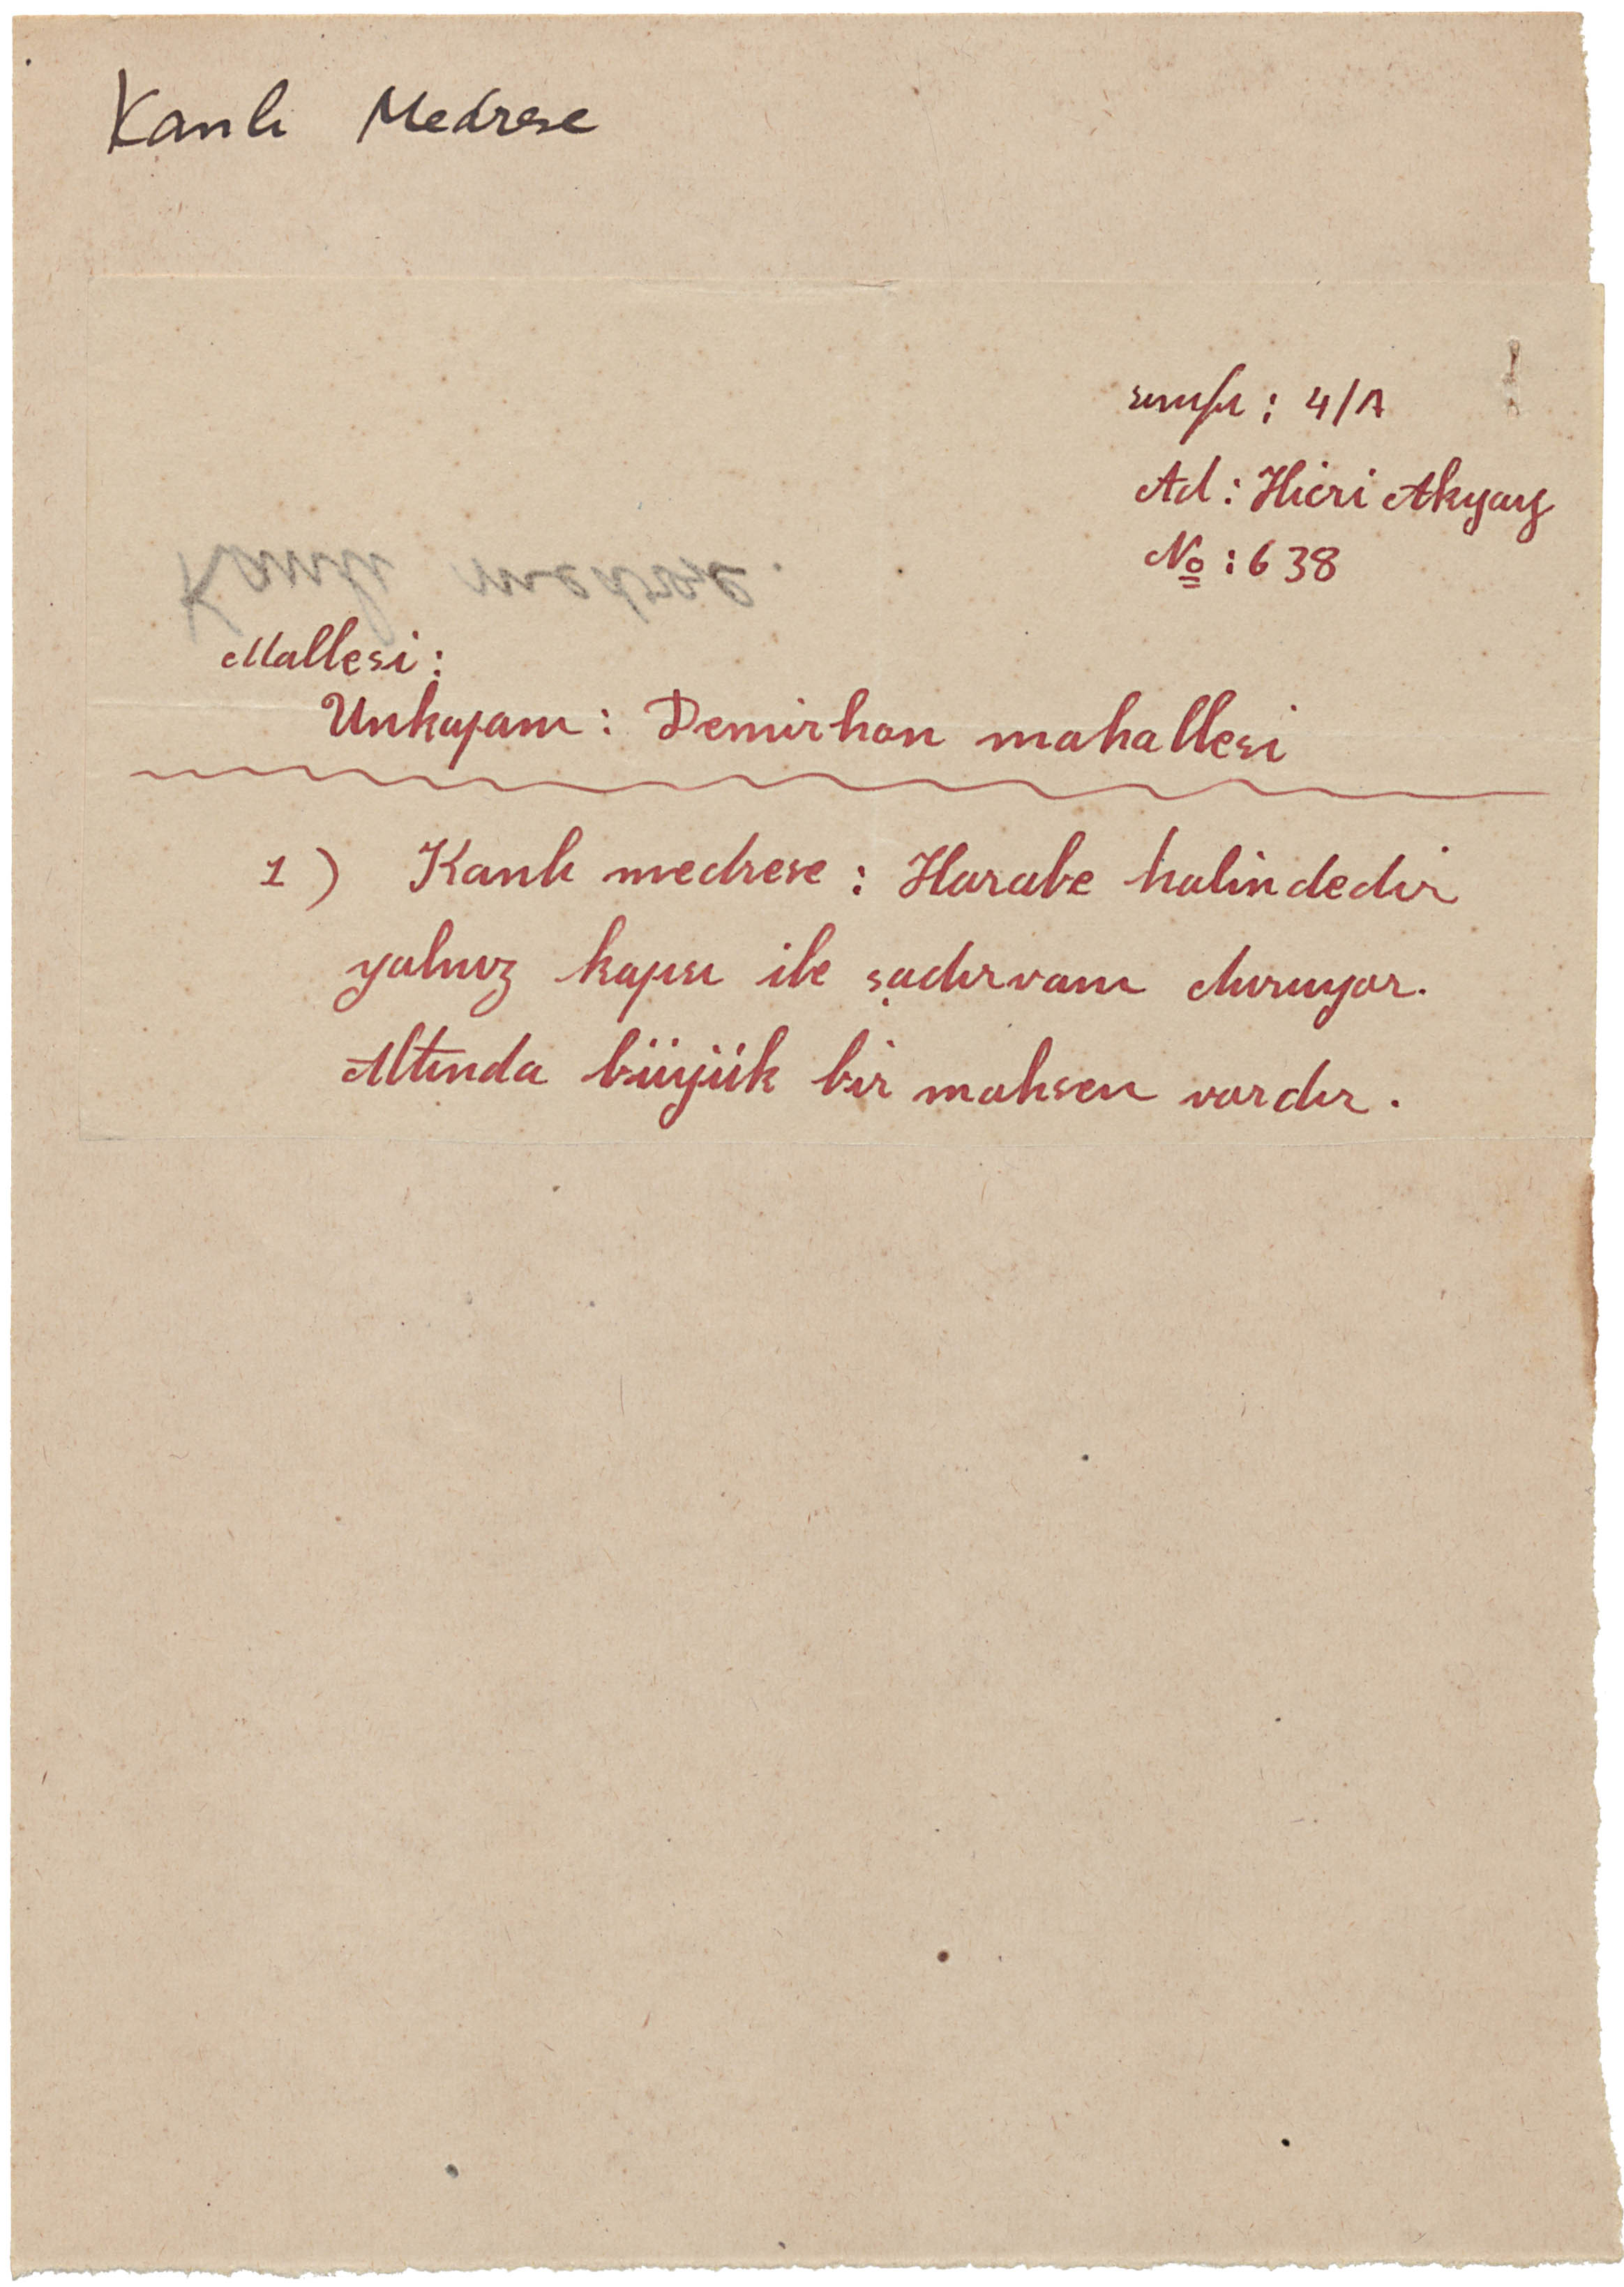 Kanlı Medrese
sınıfı : 4/A
Ad : Hicri Akyay
No : 638
Kanlı medrese.
Mallesi :
Unkapanı : Demirhan mahallesi
1) Kanlı medrese : Harabe halindedir
yalnız kapısı ile şadırvanı duruyor.
Altında büyük bir mahsen vardır.